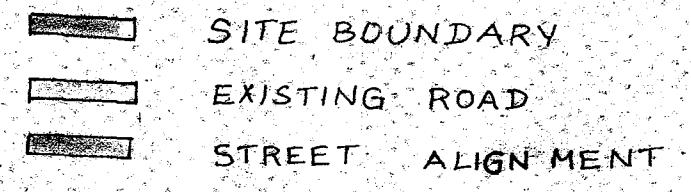 SITE BOUNDARY
EXISTING ROAD
STREET ALIGNMENT